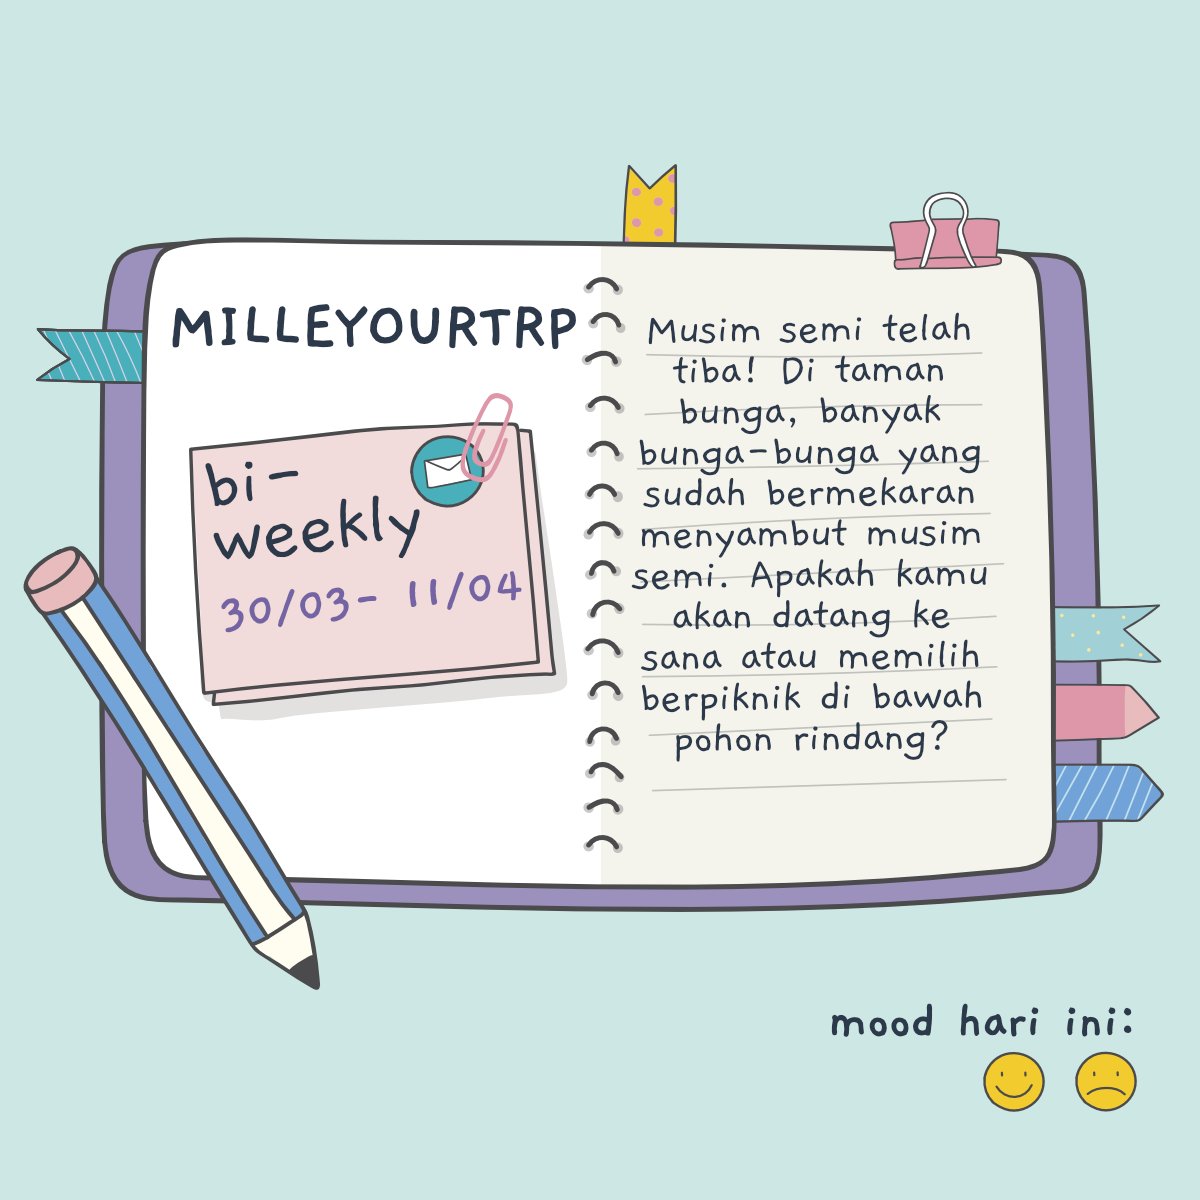 MILLEYOURTRP
bi-
weekly
30/03- 11/04
Musim semi telah
tiba! Di taman
bunga, banyak
bunga-bunga yang
sudah bermekaran
menyambut musim
semi. Apakah kamu
akan datang ke
sana atau memilih
berpiknik di bawah
pohon rindang?
mood hari ini: